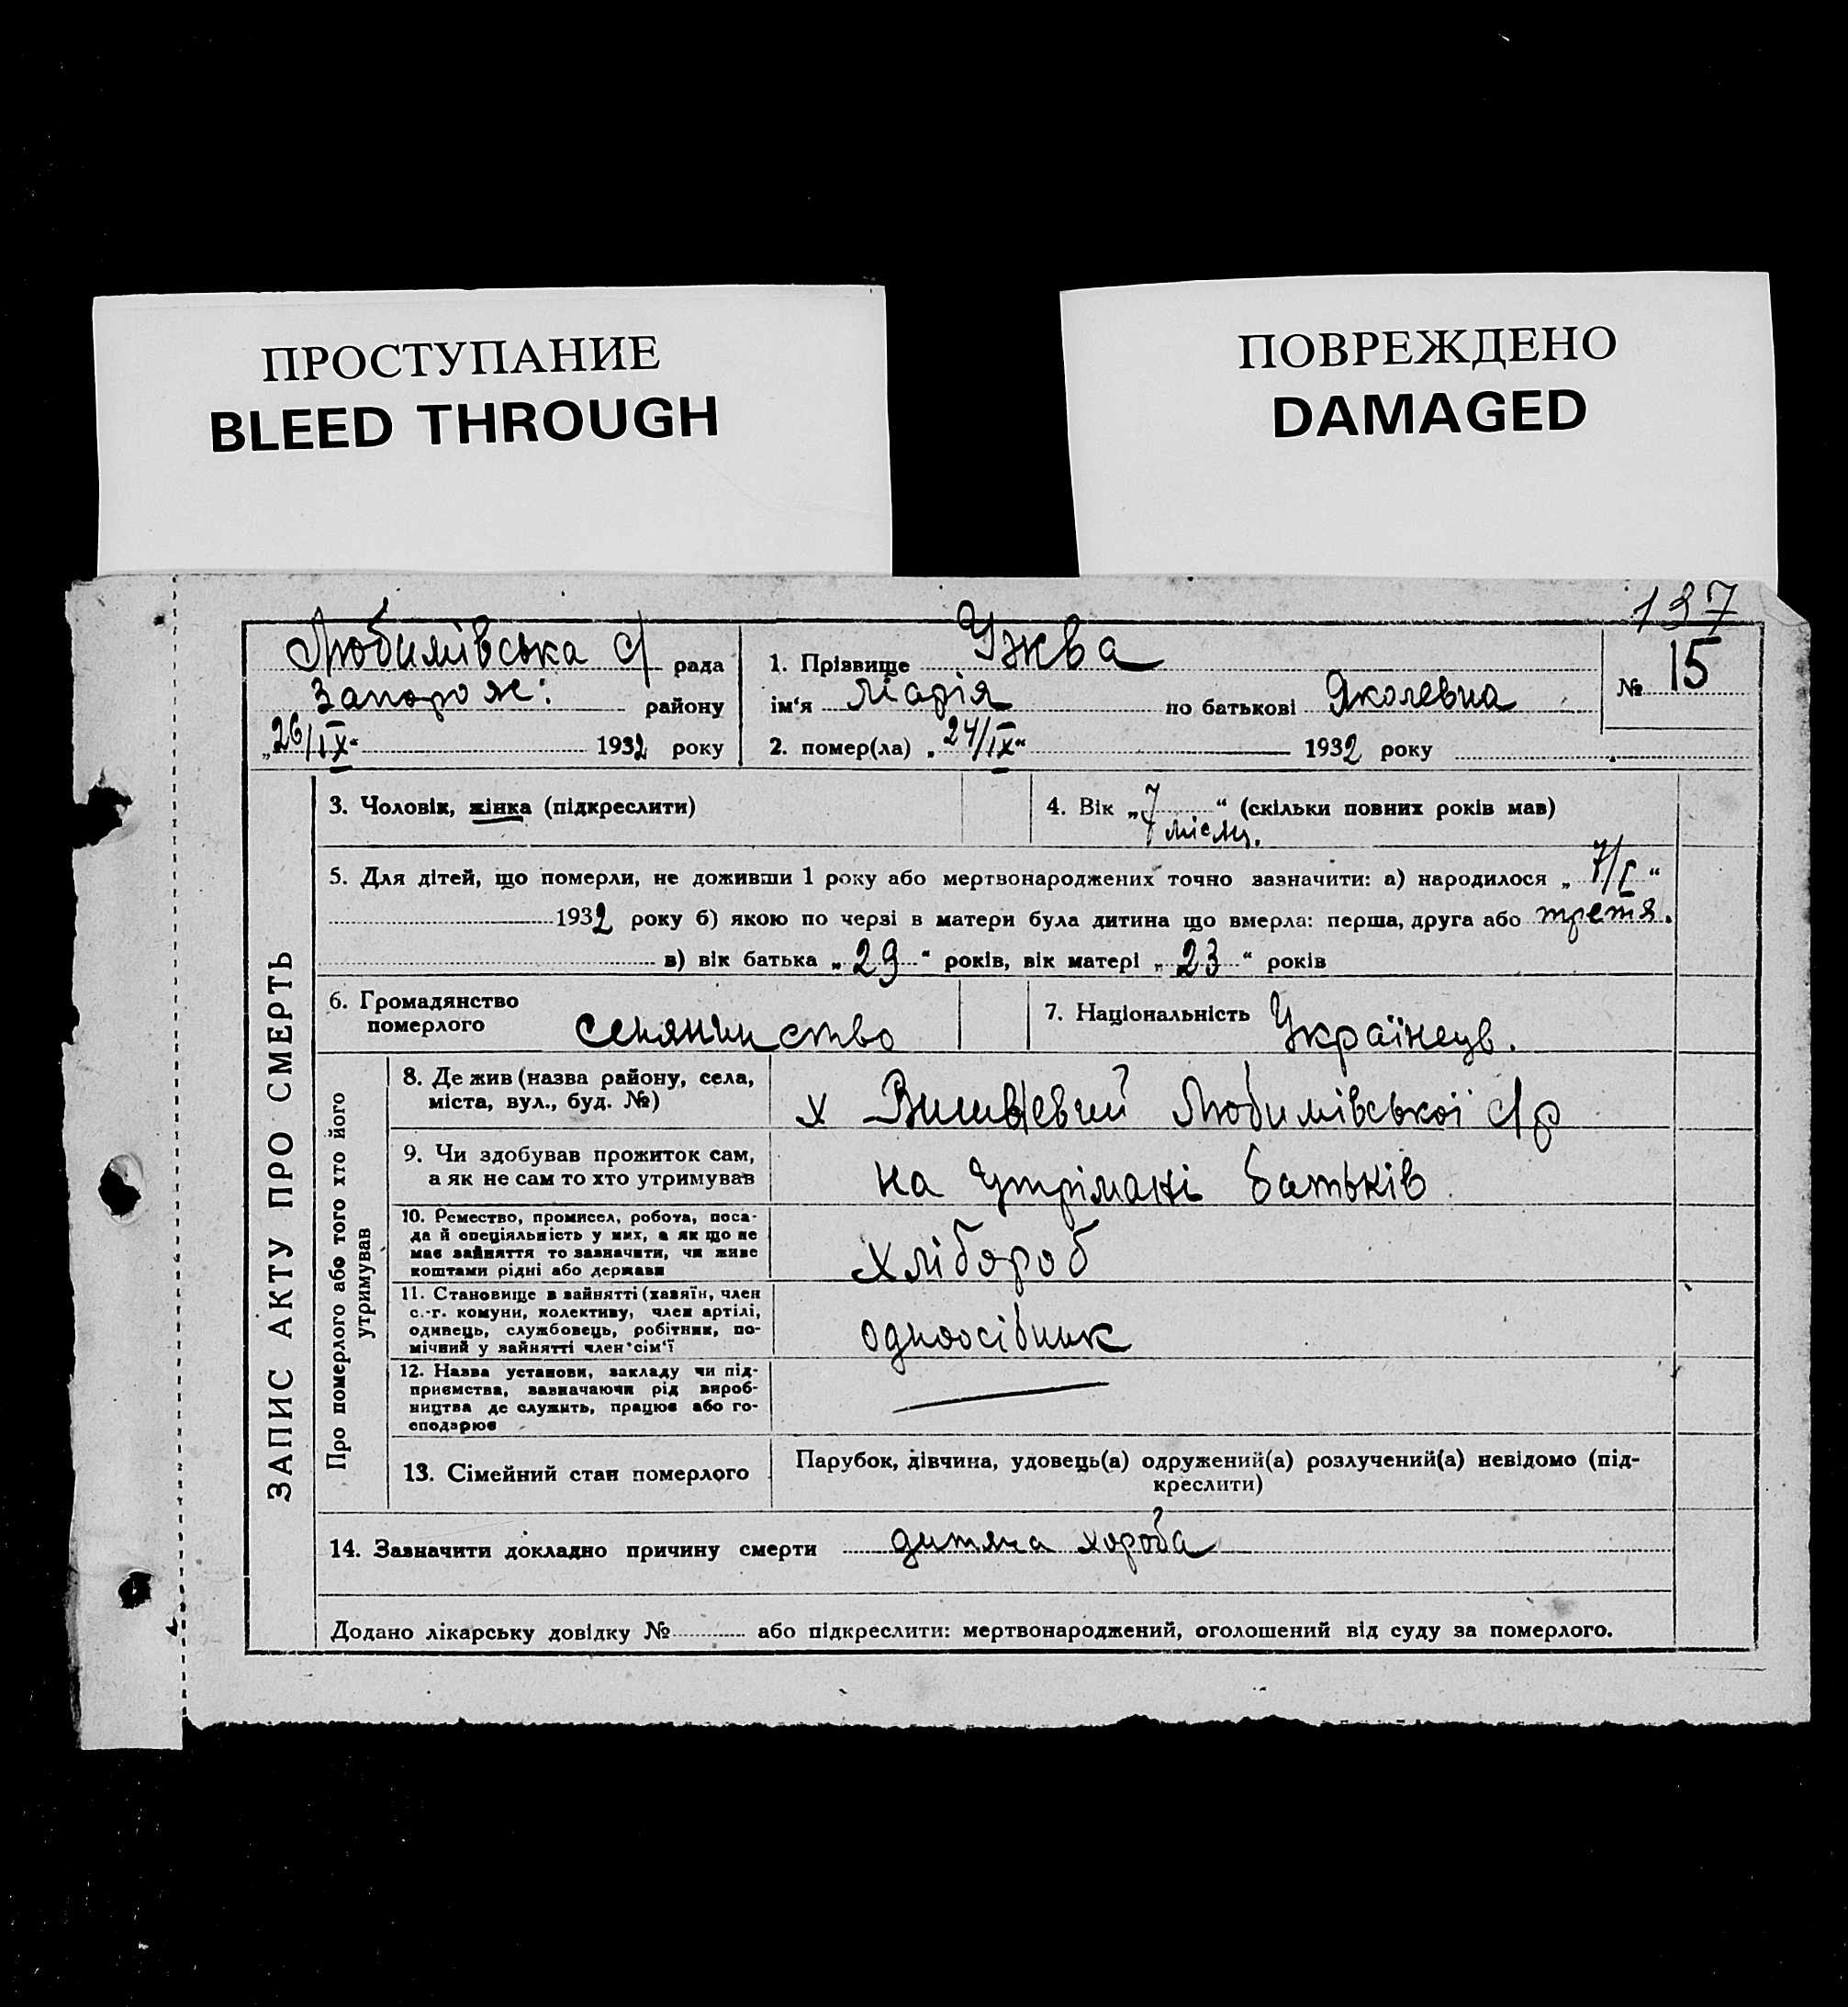 ПРОСТУПАНИЕ
BLEED THROUGH
ПОВРЕЖДЕНО
DAMAGED
137
Любимівська с/ рада
Запорож: району
„26/IX“ 1932 року
1. Прізвище Ужва
ім'я Марія по батькові Яколевна
2. помер(ла) „24/IX“ 1932 року
№ 15
ЗАПИС АКТУ ПРО СМЕРТЬ
3. Чоловік, жінка (підкреслити)
4. Вік „7“ (скільки повних років мав)
місяц.
5. Для дітей, що померли, не доживши 1 року або мертвонароджених точно зазначити: а) народилося „7/I“
1932 року б) якою по черзі в матери була дитина що вмерла: перша, друга або третя.
в) вік батька „29“ років, вік матері „23“ років
6. Громадянство
померлого селянинство
7. Національність Українець.
Про померлого або того хто його
утримував
8. Де жив (назва району, села,
міста, вул., буд. №)
х Любимівської с/р
9. Чи здобував прожиток сам,
а як не сам то хто утримував
на утрімані батьків
10. Ремество, промисел, робота, поса-
да й спеціяльність у них, а як що не
має зайняття то зазначити, чи живе
коштами рідні або держави
хлібороб
11. Становище в зайнятті (хазяїн, член
с.-г. комуни, колективу, член артілі,
одинець, службовець, робітник, по-
мічний у зайнятті член сім'ї
одноосібник
12. Назва установи, закладу чи під-
приємства, зазначаючи рід вироб-
ництва де служить, працює або го-
сподарює
13. Сімейний стан померлого
Парубок, дівчина, удовець(а) одружений(а) розлучений(а) невідомо (під-
креслити)
14. Зазначити докладно причину смерти дитяча хороба
Додано лікарську довідку № або підкреслити: мертвонароджений, оголошений від суду за померлого.